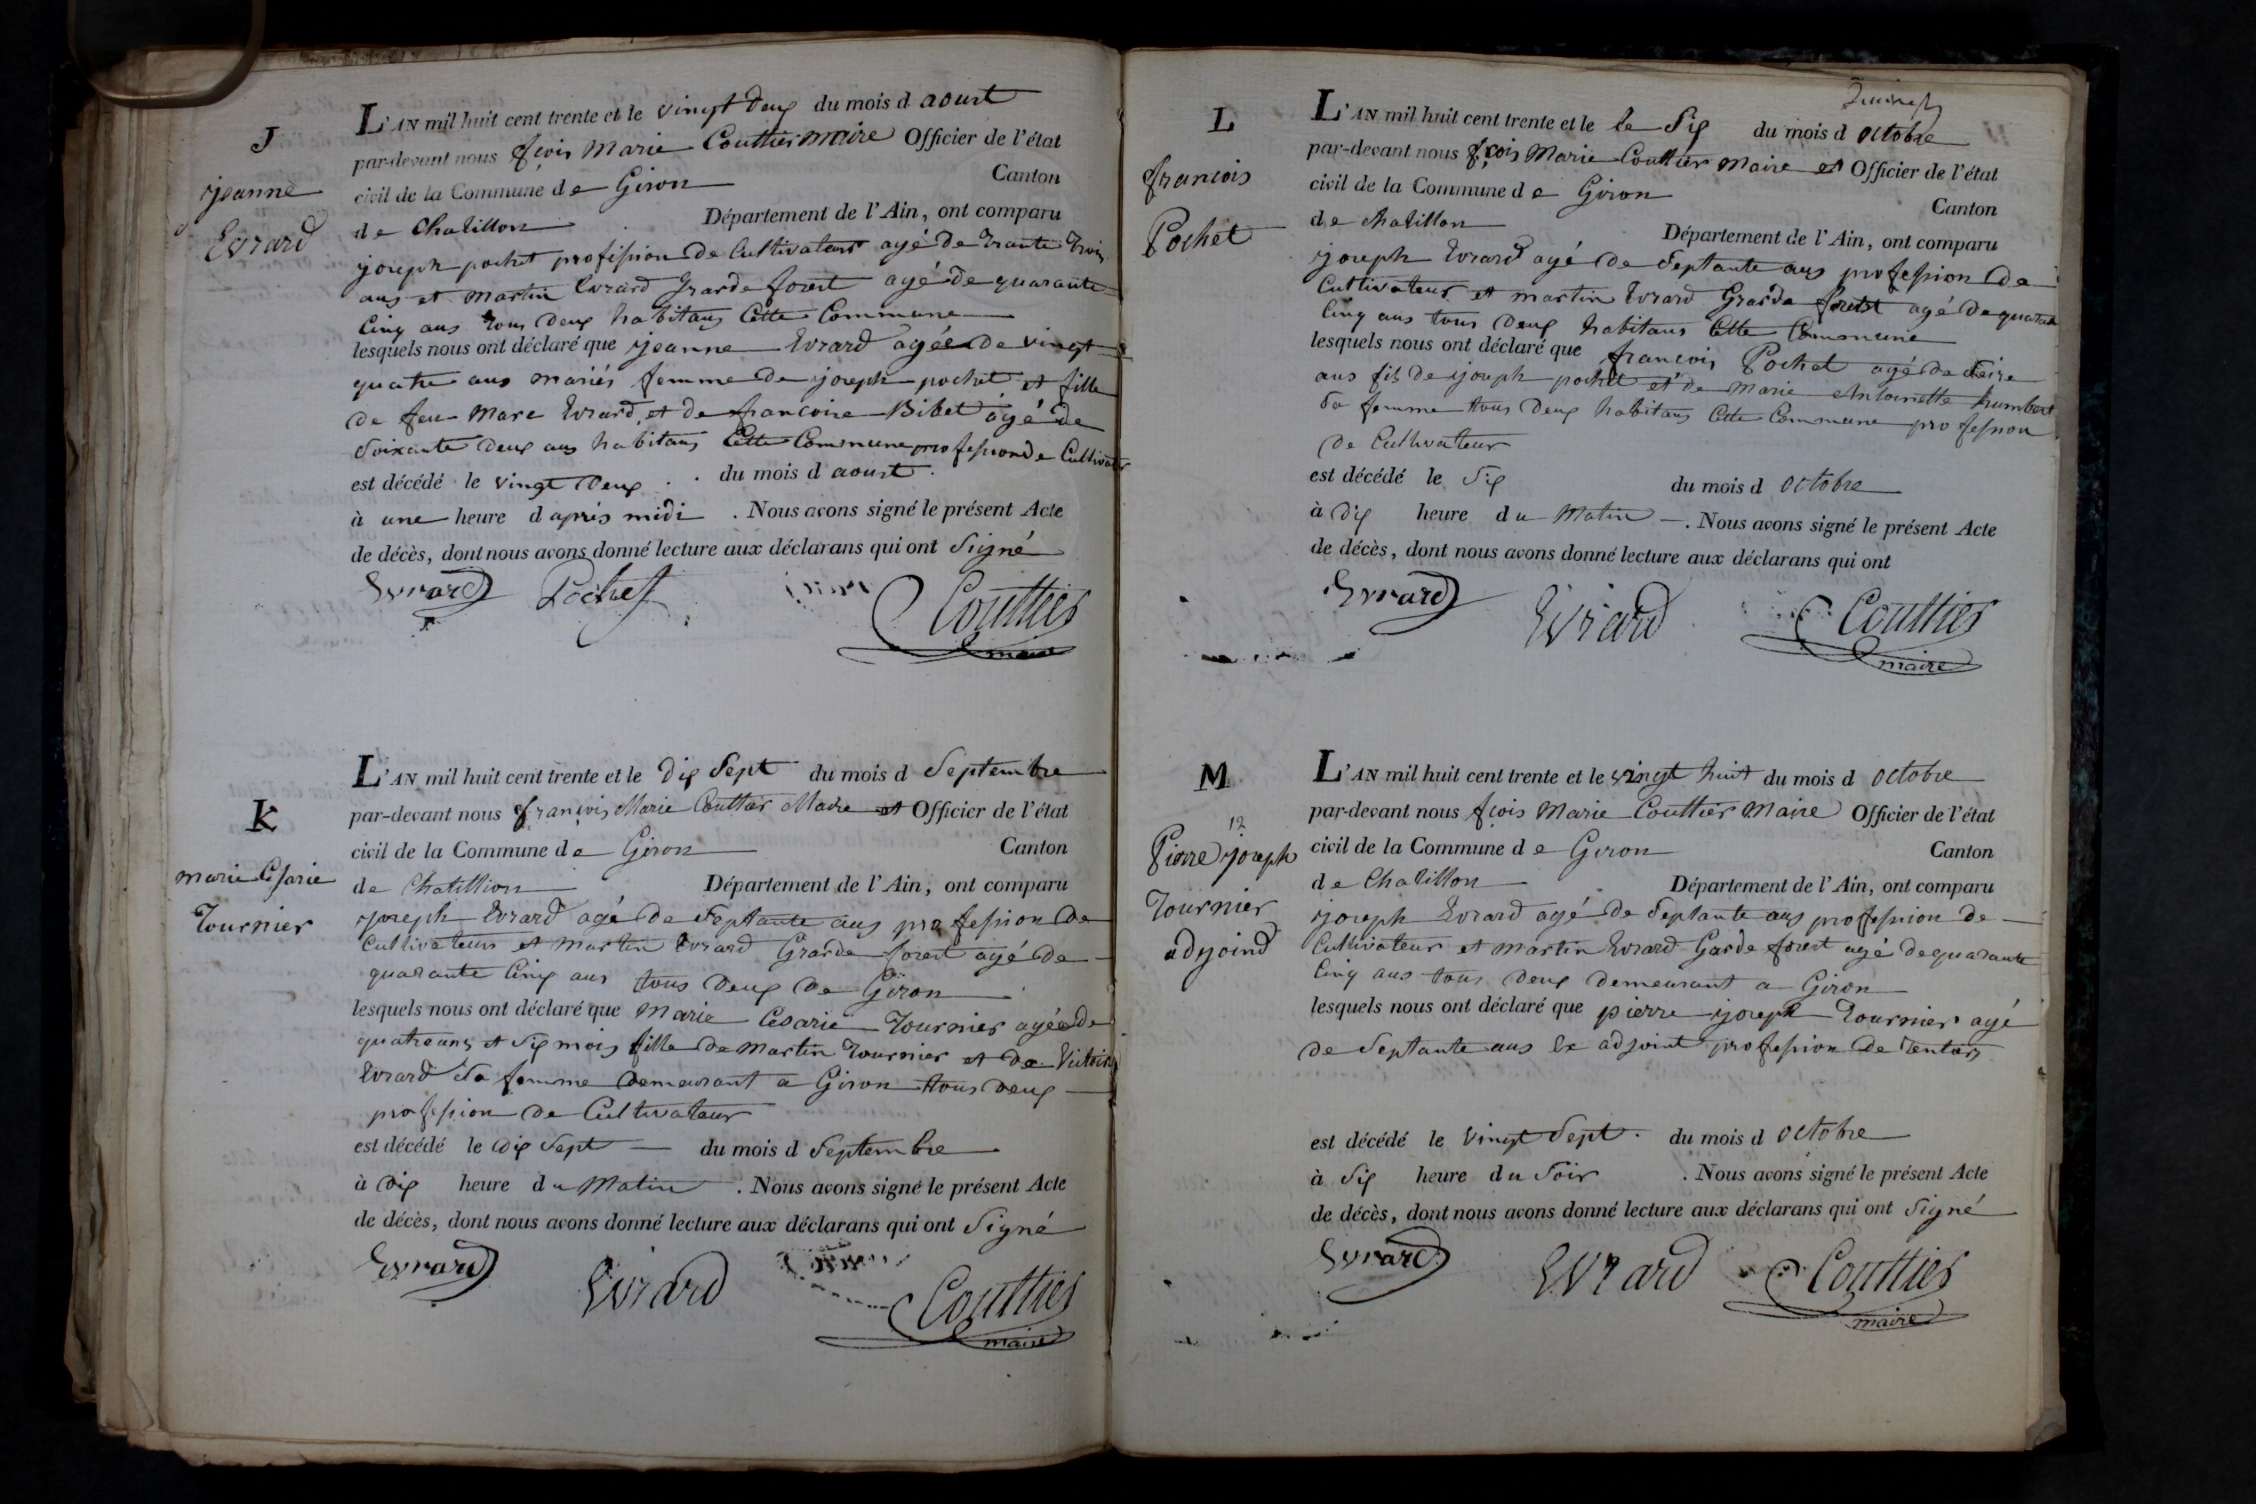 J
jeanne
Evrard
L'AN mil huit cent trente et le vingt deux du mois d aoust
par-devant nous fçois Marie Couttier maire Officier de l'état
civil de la Commune de Giron Canton
de Chatillon Département de l'Ain, ont comparu
joseph pochet profession de Cultivateur agé de trante trois
ans et martin Evrard Grarde forest agé de quarante
Cinq ans tous deux habitans Cette Commune
lesquels nous ont déclaré que jeanne Evrard agée de vingt
quatre ans mariés femme de joseph pochet et fille
de feu Marc Evrard et de francoise Bibet agé de
Soixante deux ans habitans Cette Commune profession de Cultivateur
est décédé le vingt Deux du mois d aoust
à une heure d après midi . Nous avons signé le présent Acte
de décès, dont nous avons donné lecture aux déclarans qui ont Signé
Evrard Pochet Couttier
maire
K
marie Césarie
Tournier
L'AN mil huit cent trente et le Dix Sept du mois d Septembre
par-devant nous françois Marie Couttier Maire et Officier de l'état
civil de la Commune de Giron Canton
de Chatillion Département de l'Ain, ont comparu
joseph Evrard agé de Septante ans profession de
Cultivateur et martin Evrard Grarde forest agé de
quarante Cinq ans tous deux de Giron
lesquels nous ont déclaré que Marie Cesarie Tournier agée de
quatre ans et Six mois fille de Martin Tournier et de Victoire
Evrard Sa femme demeurant a Giron tous deux
profession de Cultivateur
est décédé le dix Sept du mois d Septembre
à dix heure du Matin . Nous avons signé le présent Acte
de décès, dont nous avons donné lecture aux déclarans qui ont Signé
Evrard Evrard Couttier
maire
L
francois
Pochet
L'AN mil huit cent trente et le le Six du mois d octobre
par-devant nous fçois Marie Couttier Maire et Officier de l'état
civil de la Commune de Giron Canton
de chatillon Département de l'Ain, ont comparu
joseph Evrard agé de Septante ans profession de
Cultivateur et martin Evrard Grarde forest agé de quarante
Cinq ans tous deux habitans Cette Commune
lesquels nous ont déclaré que francois Pochet agé de
ans fils de joseph pochet et de Marie Antoinette humbert
Sa femme tous deux habitans Cette Commune profession
de Cultivateur
est décédé le Six du mois d octobre
à Dix heure du Matin . Nous avons signé le présent Acte
de décès, dont nous avons donné lecture aux déclarans qui ont
Evrard Evrard Couttier
maire
M
12
Pierre joseph
Tournier
adjoind
L'AN mil huit cent trente et le vingt huit du mois d octobre
par-devant nous fçois Marie Couttier Maire Officier de l'état
civil de la Commune de Giron Canton
de Chatillon Département de l'Ain, ont comparu
joseph Evrard agé de Septante ans profession de
Cultivateur et martin Evrard Garde forest agé de quarante
Cinq ans tous deux demeurant a Giron
lesquels nous ont déclaré que pierre joseph Tournier agé
de Septante ans Ex adjoint profession de rentier
est décédé le vingt Sept du mois d octobre
à Six heure du Soir . Nous avons signé le présent Acte
de décès, dont nous avons donné lecture aux déclarans qui ont Signé
Evrard Evrard Couttier
maire